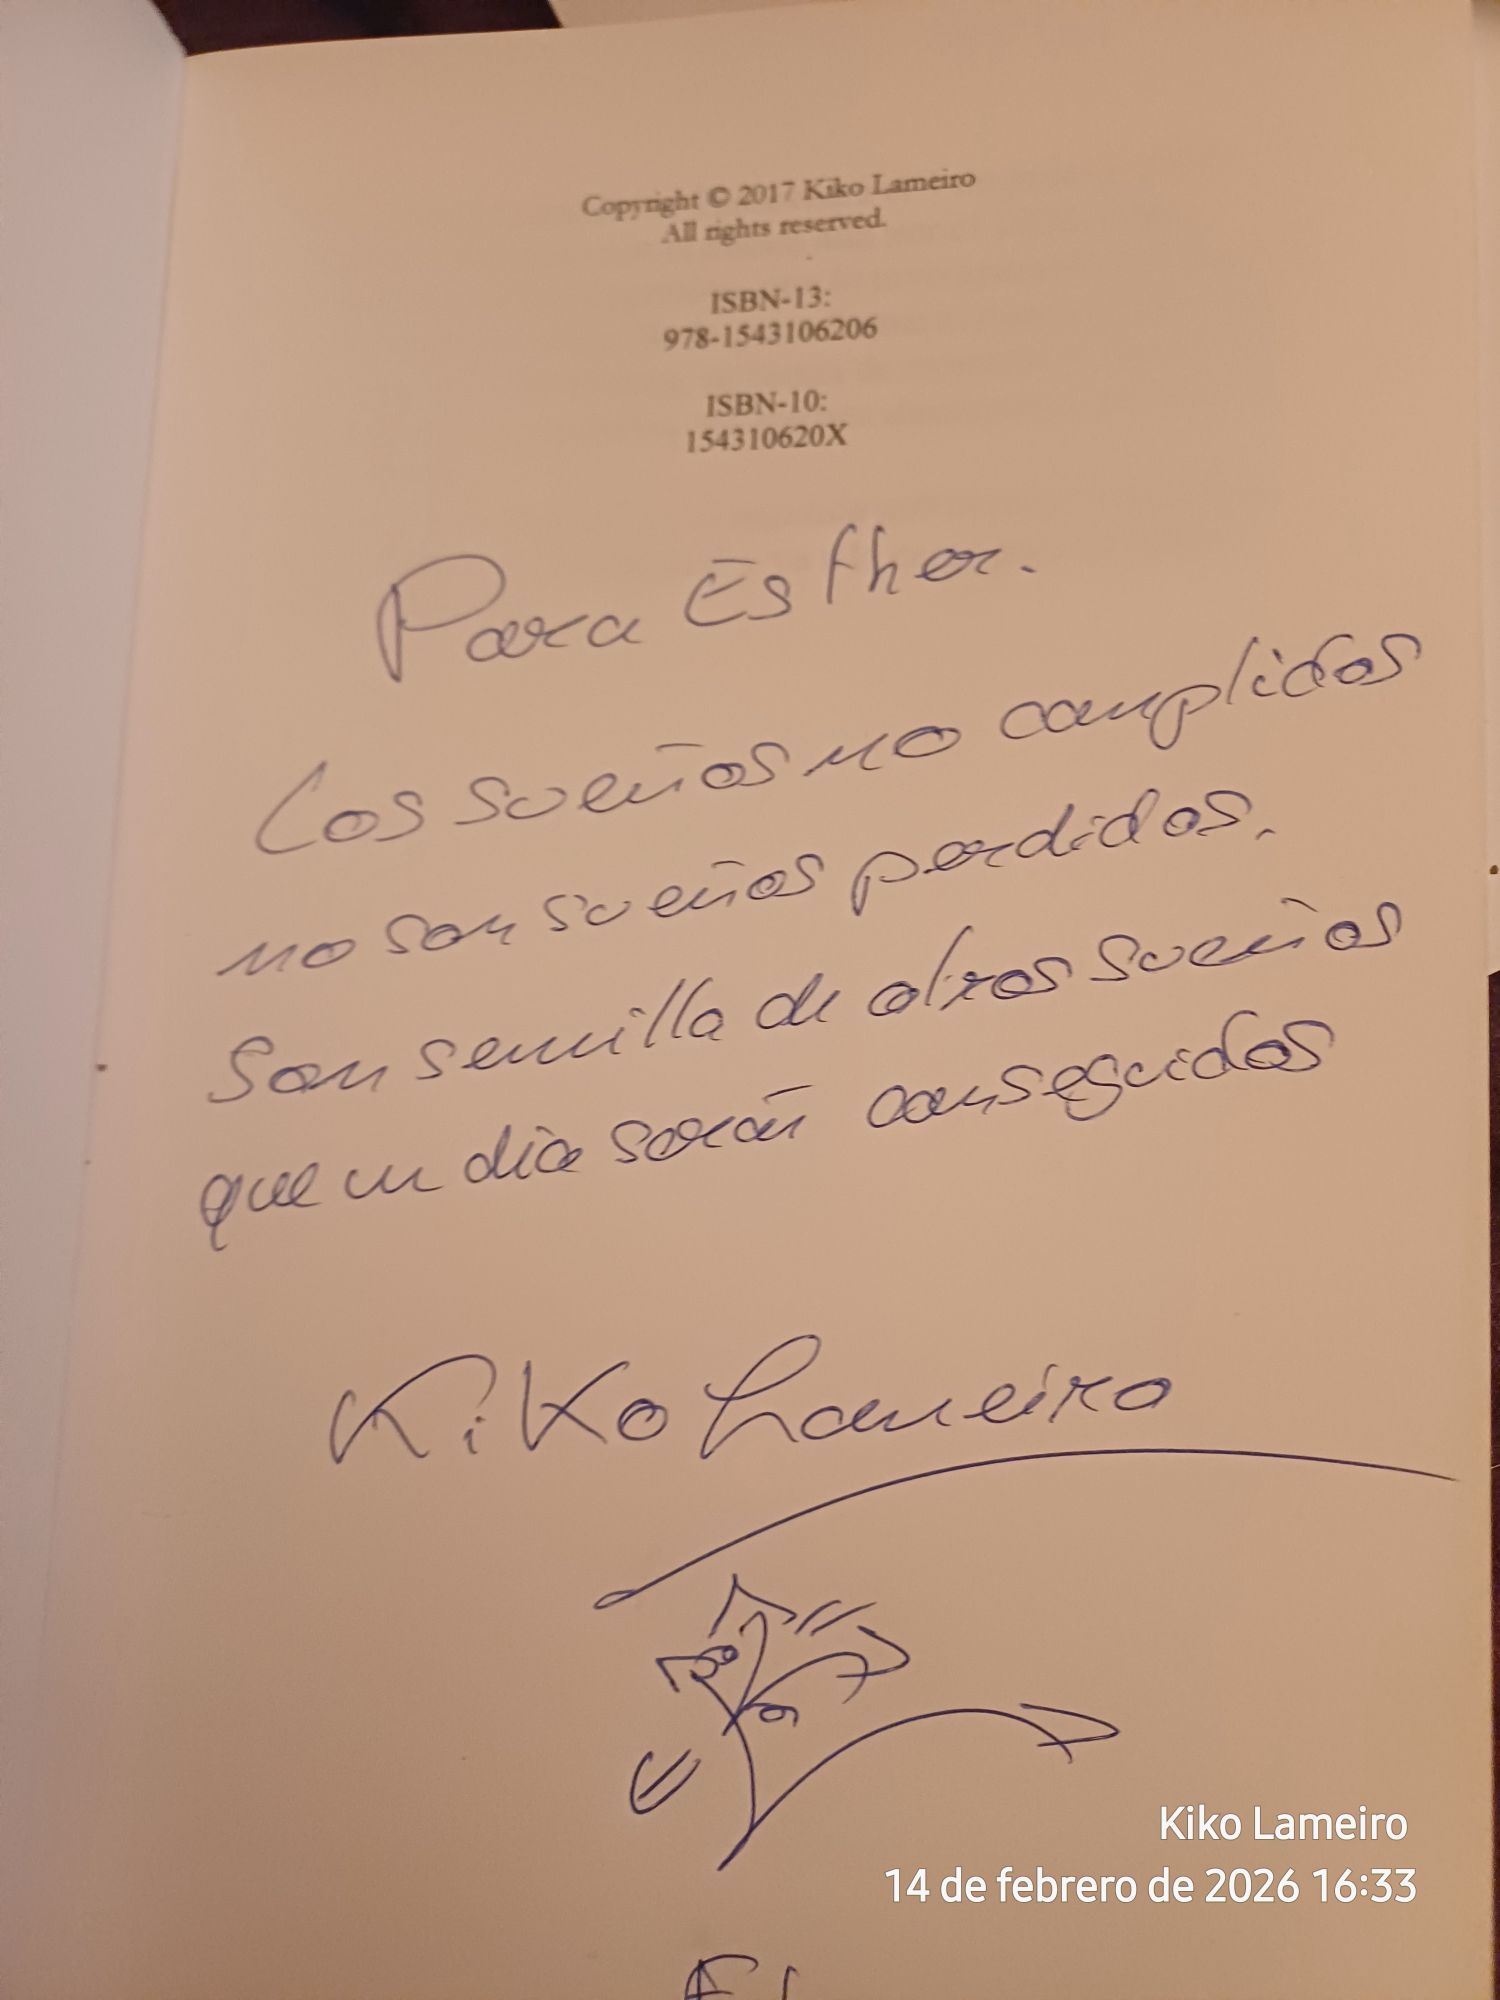 Copyright © 2017 Kiko Lameiro
All rights reserved.
ISBN-13:
978-1543106206
ISBN-10:
154310620X
Para Esther.
Los sueños no cumplidos
no son sueños perdidos.
Son semilla de otros sueños
que un día serán conseguidos
Kiko Lameiro
Kiko Lameiro
14 de febrero de 2026 16:33